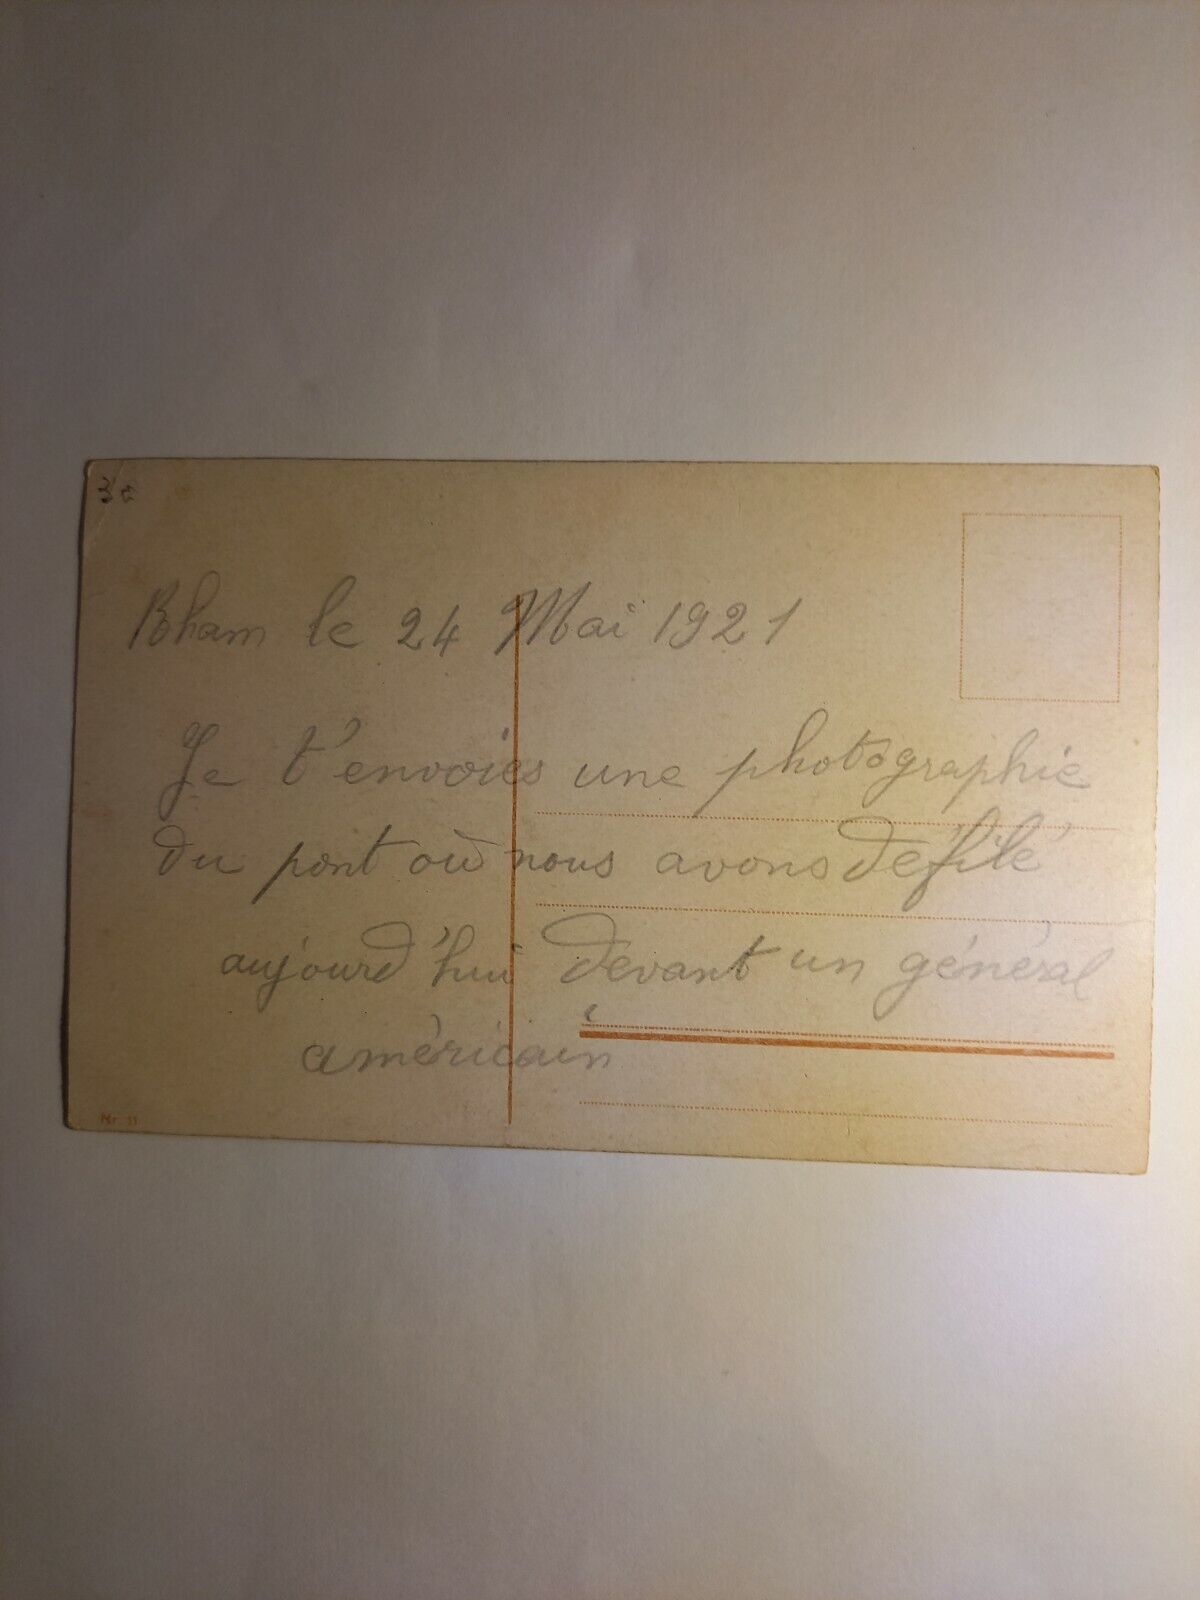 30
Bham le 24 Mai 1921
Je t'envoies une photographie
du pont où nous avons défilé
aujourd'hui devant un général
américain
Nr. 11